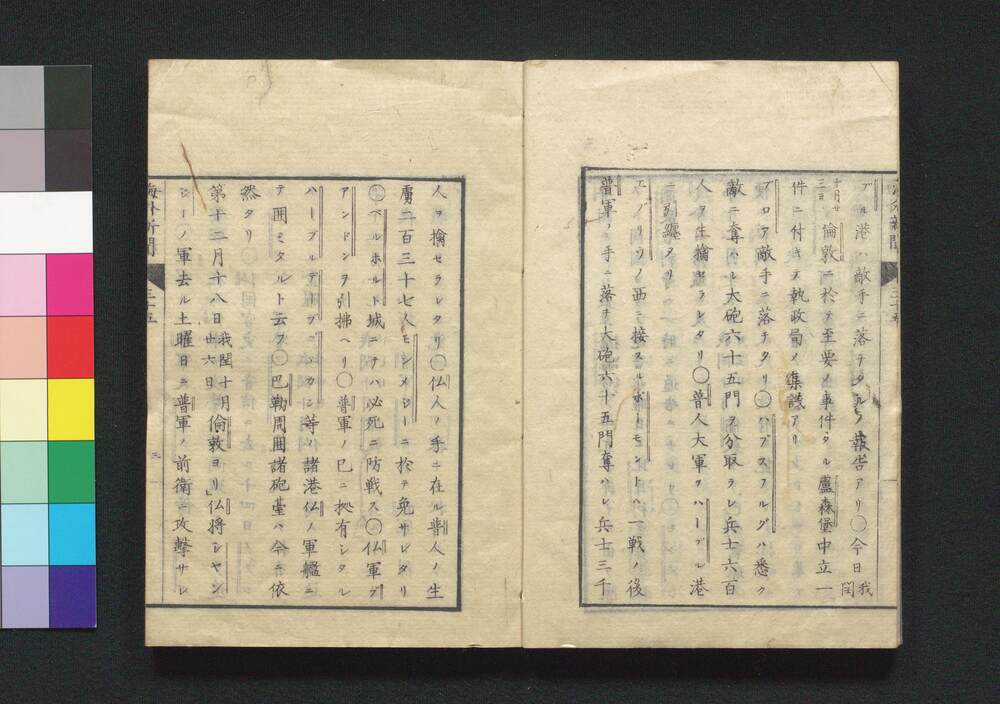 ブル港ハ敵手ニ落チタルノ報告アリ〇今日我閏
十月廿三日倫敦ニ於テ至要ノ事件タル盧森堡中立一
件ニ付キテ執政局ノ集議アリシ
ブロア敵手ニ落チタリ〇ハブスフルグハ悉ク
敵ニ奪ハレ大砲六十五門ヲ分取ラレ兵士六百
人ヲ生擒セラレタリ〇普人大軍ヲハーブル港
ニ
エブリウノ西ニ接スルボーモントハ一戦ノ後
普軍ノ手ニ落チ大砲六十五門奪ハレ兵士三千
人ヲ擒セラレタリ〇仏人ノ手ニ在ル普人ノ生
虜二百三十七人モンメジーニ於テ免サレタリ
〇ベルホルト城ニテハ必死ニ防戦ス〇仏軍ブ
アンドンヲ引拂ヘリ〇普軍ノ已ニ拠有シタル
ハーブルデーブ カン等ノ諸港仏ノ軍艦ニ
テ囲ミタルト云フ〇巴勒周囲諸砲臺ハ今ニ依
然タリ
第十二月十八日我閏十月廿六日倫敦ヨリ」仏将シヤン
ジーノ軍去ル土曜日ニ普軍ノ前衛ニ攻撃サレ
海外新聞
三十五
三